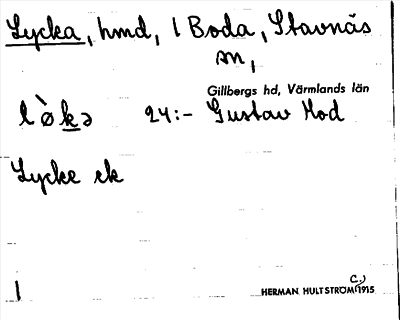 Lycka, hmd, 1 Boda, Stavnäs
sn,
Gillbergs hd, Värmlands län
lø̀kə 24:- Gustav Mod
Lycke ek
1
HERMAN HULTSTRÖM (c.) 1915